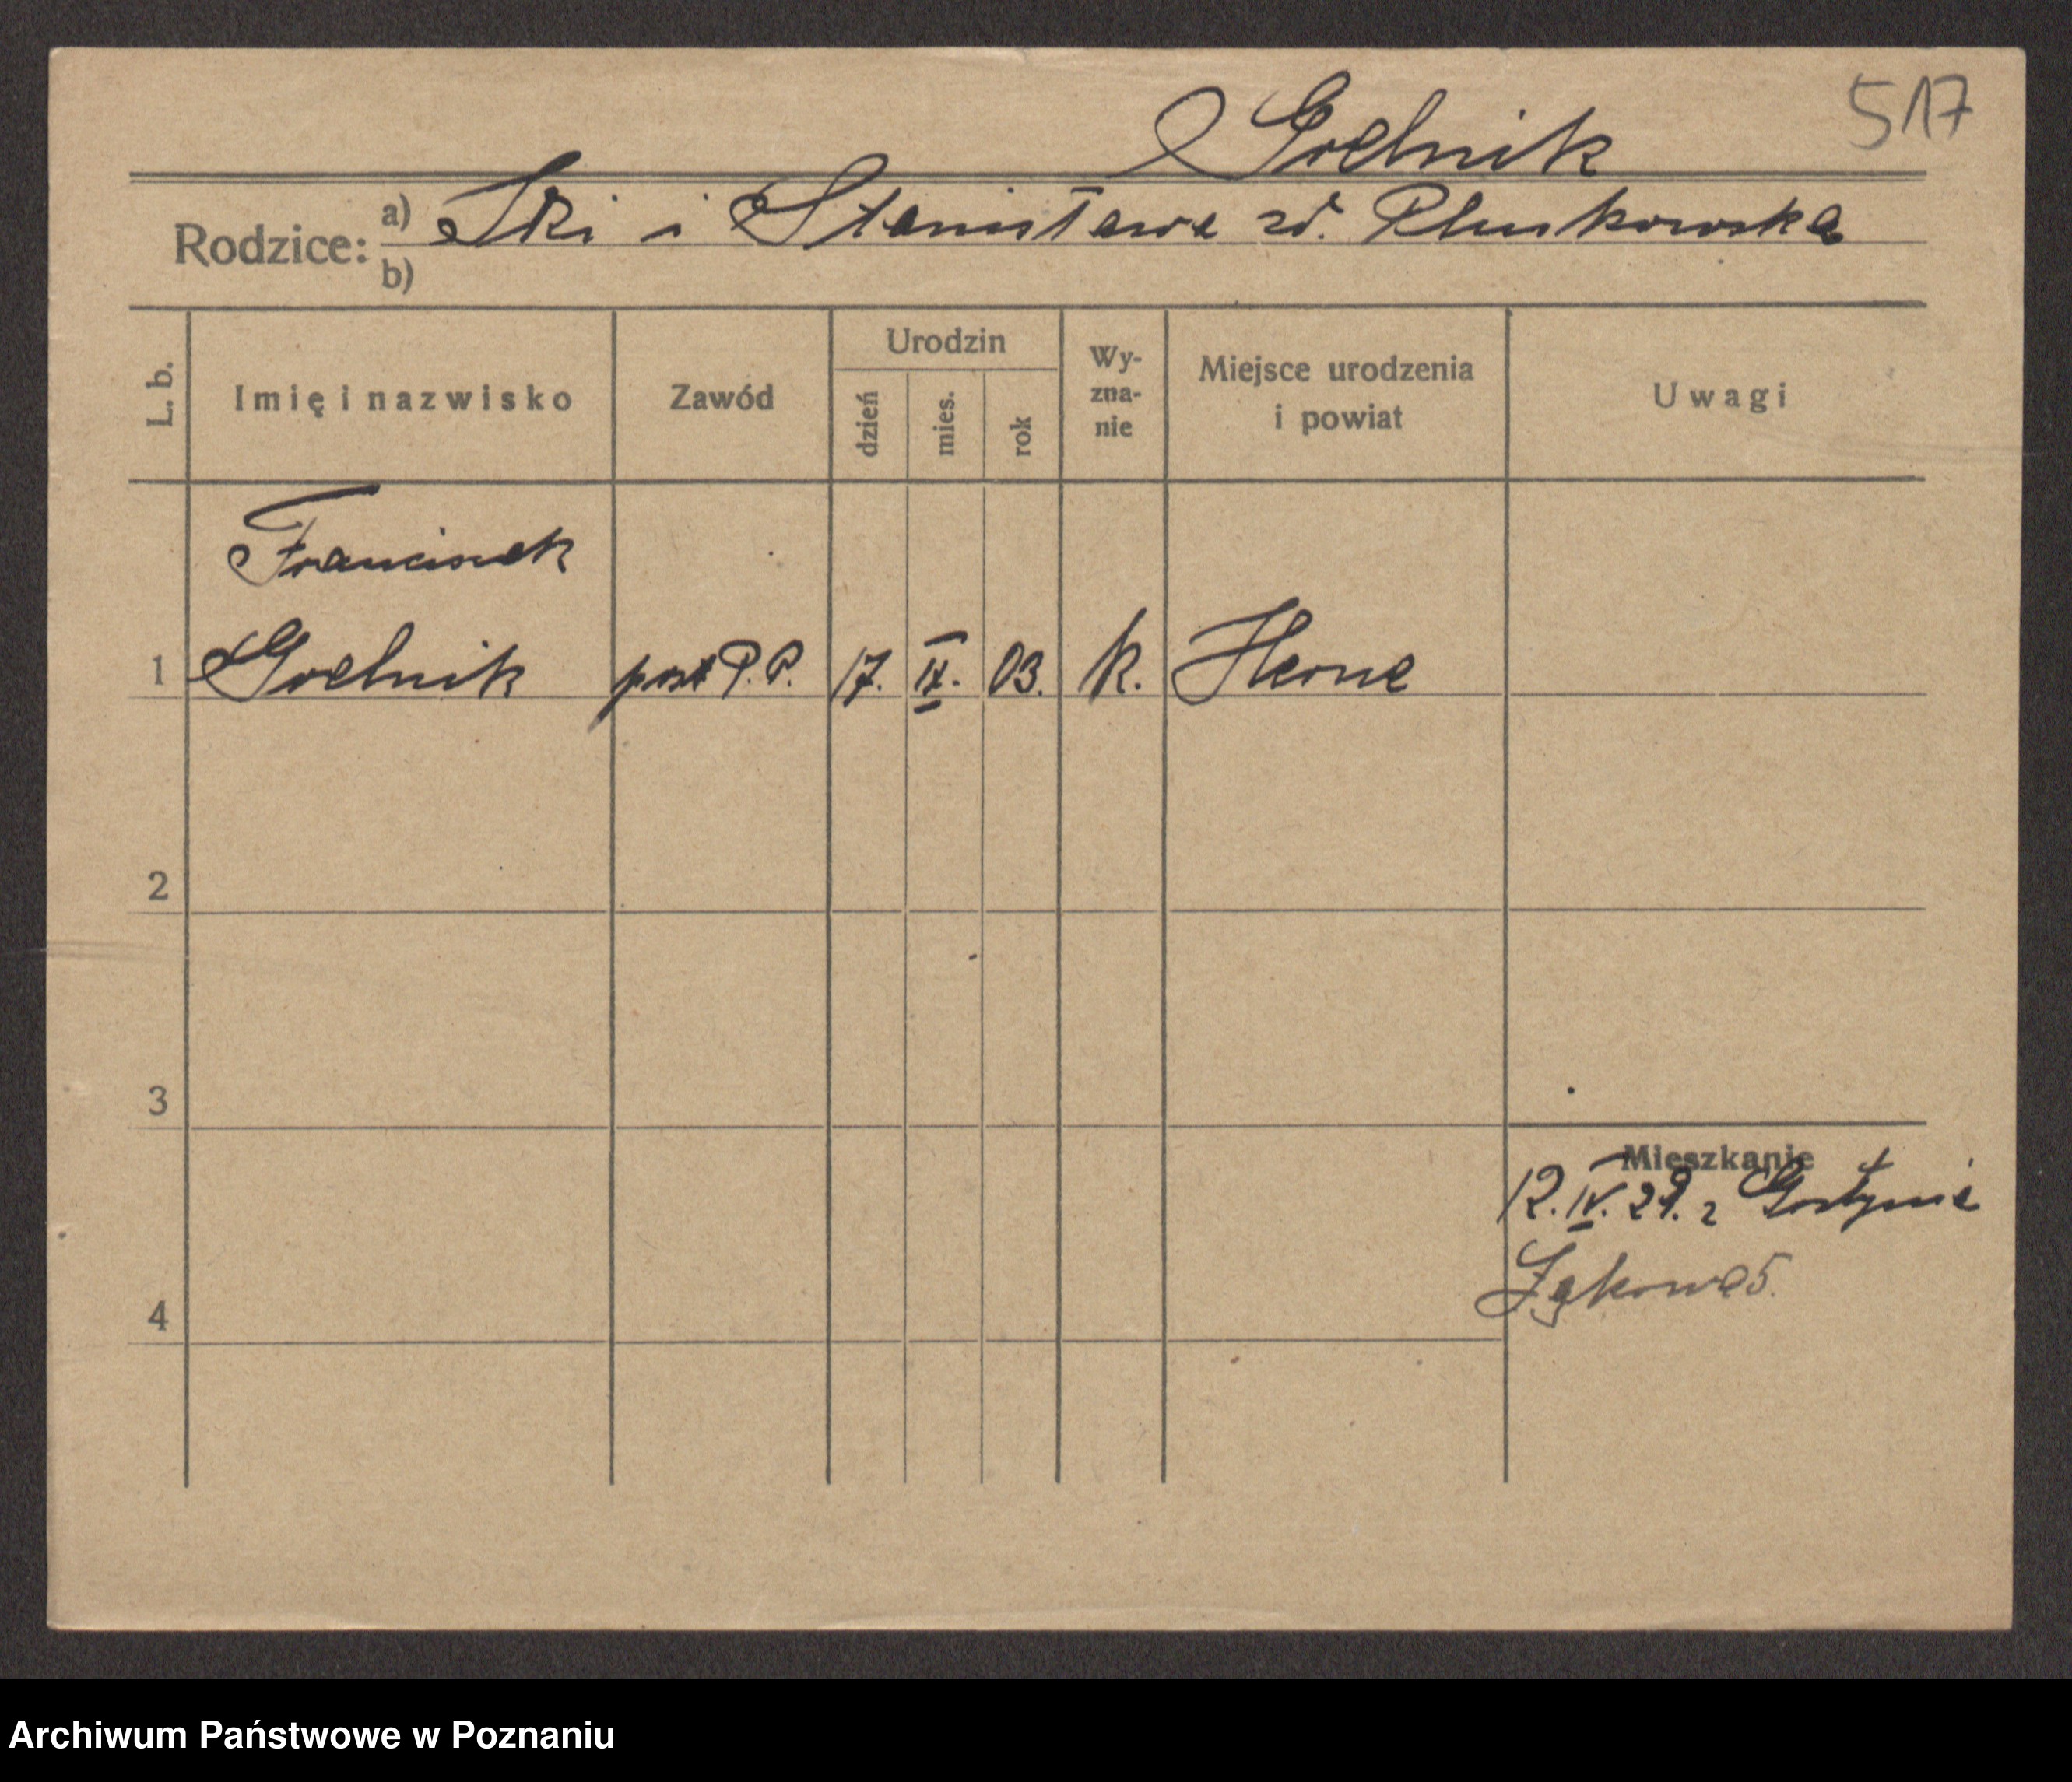 Goelnik
517
Rodzice: a) i Stanisława zd. Pluskowska
b)
L. b.
Imię i nazwisko
Zawód
Urodzin
dzień
mies.
rok
Wy-
zna-
nie
Miejsce urodzenia
i powiat
Uwagi
Franciszek
1 Goelnik post P.P. 17. IX. 03. k. Herne
2
3
Mieszkanie
12. IV. 29. z Gostynia
Łąkowa 5.
4
Archiwum Państwowe w Poznaniu